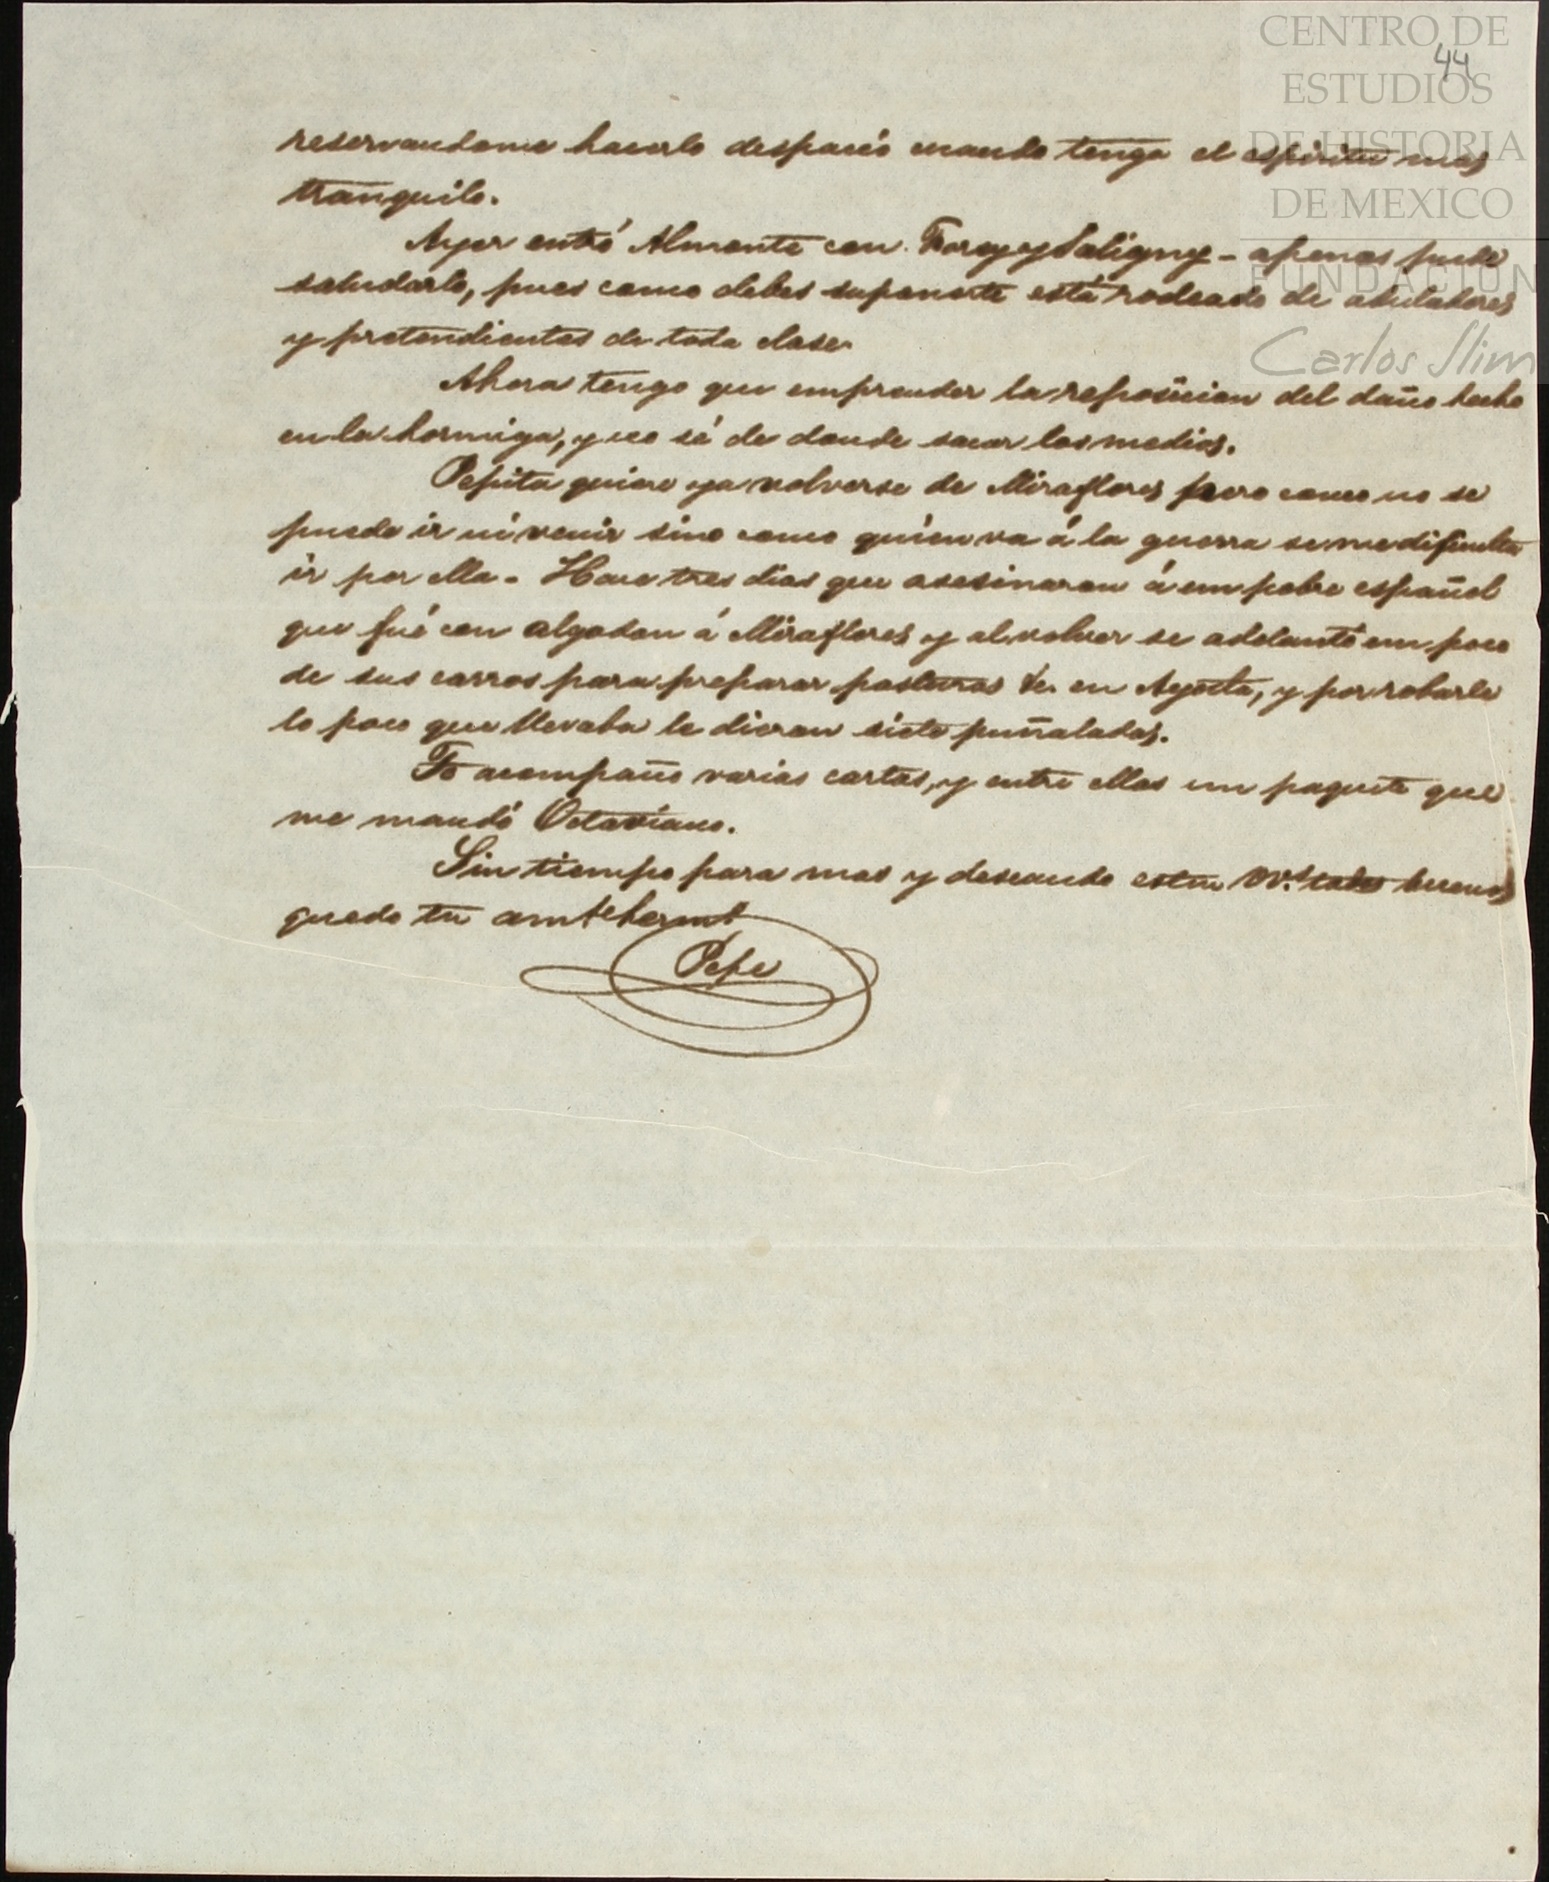 CENTRO DE
ESTUDIOS
DE HISTORIA
DE MEXICO
FUNDACIÓN
Carlos Slim
44
reservandome hacerlo despacio cuando tenga el espiritu mas
tranquilo.
Ayer entró Almonte con Forey y Saligny - apenas pude
saludarlo, pues como debes suponerte está rodeado de aduladores
y pretendientes de toda clase.
Ahora tengo que emprender la reposicion del daño hecho
en la hormiga, y no sé de donde sacar los medios.
Pepita quiere ya volverse de Miraflores pero como no se
puede ir ni venir sino como quien va á la guerra se me dificulta
ir por ella. Hace tres dias que asesinaron á un pobre español
que fué con algodon á Miraflores y al volver se adelantó un poco
de sus carros para preparar pasturas &c. en Ayotla, y por robarle
lo poco que llevaba le dieron siete puñaladas.
Te acompaño varias cartas, y entre ellas un paquete que
me mandó Octaviano.
Sin tiempo para mas y deseando esten VV.s todos buenos
quedo tu amte hermo
Pepe